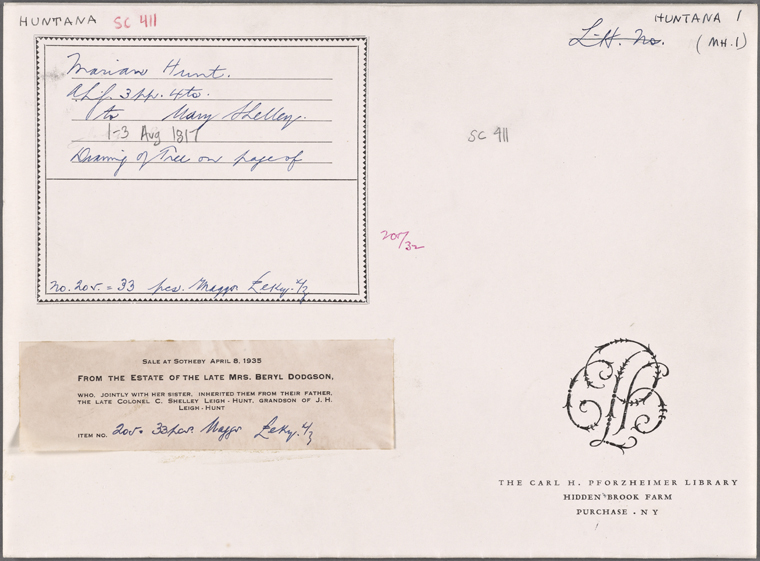 HUNTANA SC 411
HUNTANA 1
L-H. No. (MH.1)
Marian Hunt.
A.L.f. 3 pp. 4to.
to Mary Shelley.
1-3 Aug 1817
Drawing of Tree on page of
SC 411
205/32
no. 205. = 33 pcs. Maggs
SALE AT SOTHEBY APRIL 8, 1935
FROM THE ESTATE OF THE LATE MRS. BERYL DODGSON,
WHO, JOINTLY WITH HER SISTER, INHERITED THEM FROM THEIR FATHER,
THE LATE COLONEL C. SHELLEY LEIGH-HUNT, GRANDSON OF J. H.
LEIGH-HUNT
ITEM NO. 205. 33 pcs. Maggs
THE CARL H. PFORZHEIMER LIBRARY
HIDDEN BROOK FARM
PURCHASE · N Y